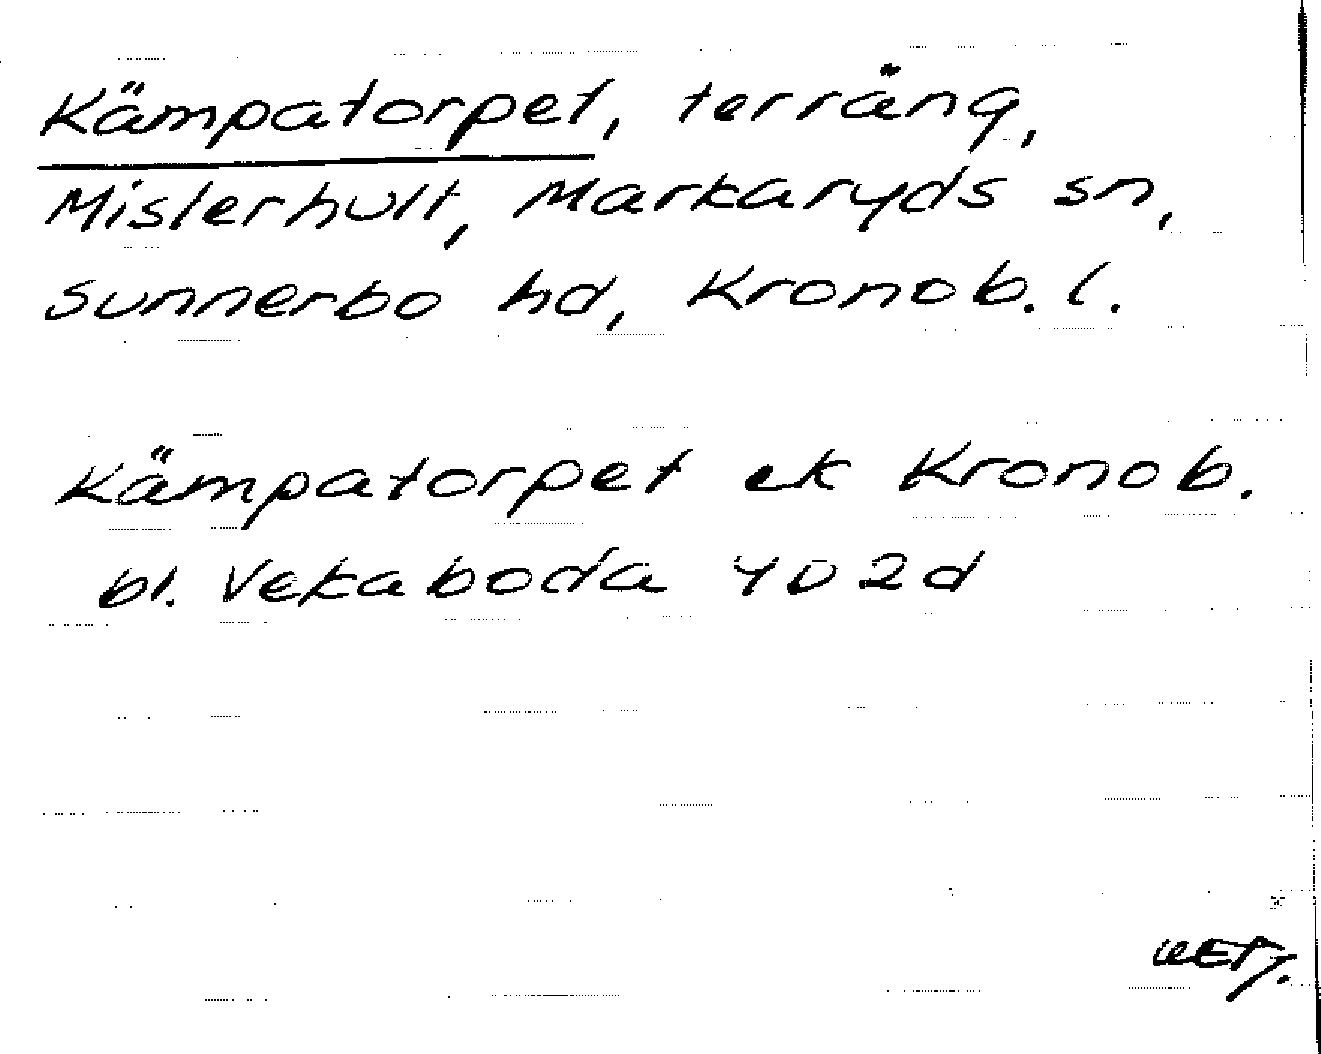 Kämpatorpet, terräng,
Misterhult, Markaryds sn,
Sunnerbo hd, Kronob. l.
Kämpatorpet ek Kronob.
bl. Vekaboda 4D2d